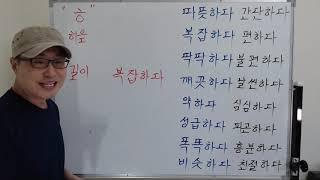 복잡하다
따뜻하다 간단하다
복잡하다 편하다
딱딱하다 불편하다
깨끗하다 날씬하다
약하다 심심하다
성급하다 피곤하다
똑똑하다 흥분하다
비슷하다 친절하다